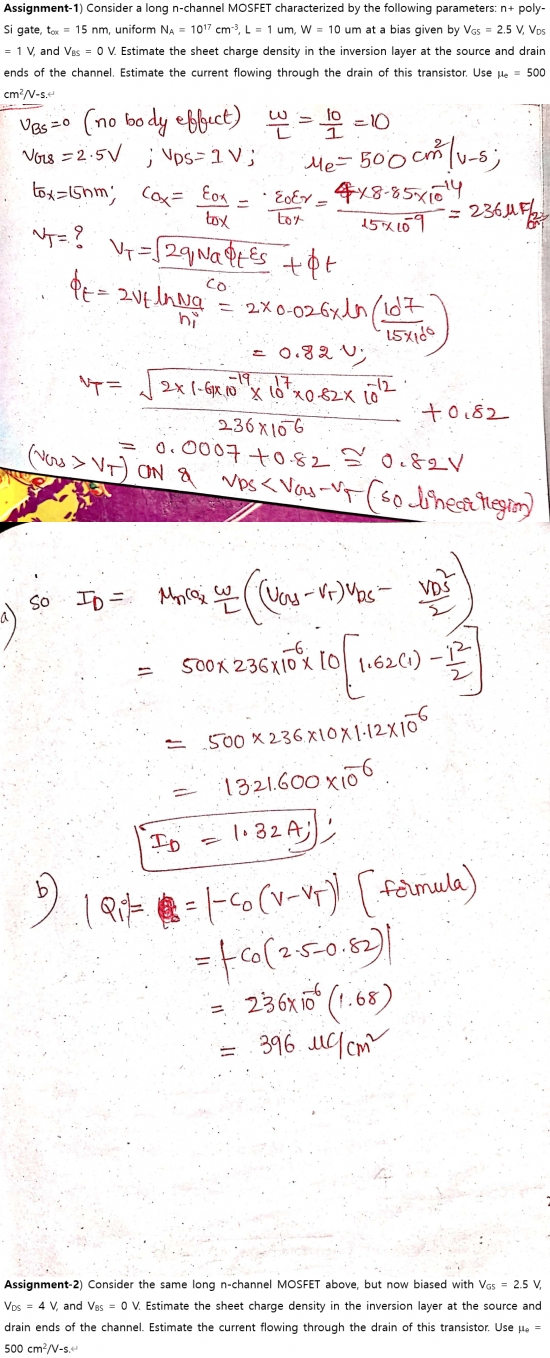 Assignment-1) Consider a long n-channel MOSFET characterized by the following parameters: n+ poly-
Si gate, tox = 15 nm, uniform NA = 10^17 cm-3, L = 1 um, W = 10 um at a bias given by VGS = 2.5 V, VDS
= 1 V, and VBS = 0 V. Estimate the sheet charge density in the inversion layer at the source and drain
ends of the channel. Estimate the current flowing through the drain of this transistor. Use μe = 500
cm2/V-s.↵
VBS=0 (no body effect) W/L = 10/1 = 10
VGS = 2.5V ; VDS = 1V ; μe = 500 cm2/v-s;
tox=15nm; Cox = εox/tox = ε0εr/tox = 4×8.85×10^-14/15×10^-9 = 236μF/
VT=? VT = √2qNaϕtεs/Co + ϕt
ϕt = 2Vt ln Na/ni = 2×0.026× ln(10^17/1.5×10^10)
= 0.82 V;
VT = √2×1.6×10^-19×10^17×0.82×10^-12/236×10^-6 + 0.82
= 0.0007 + 0.82 ≅ 0.82V
(VGS > VT) ON & VDS < VGS-VT (so linear region)
a) so ID = μnCox W/L ((VGS-VT)VDS - VDS^2/2)
= 500×236×10^-6×10[1.62(1) - 1^2/2]
= 500×236×10×1.12×10^-6
= 1321.600×10^-6
ID = 1.32A;;
b) |Qi| = = |-Co(V-VT)| [formula)
= |-Co(2.5-0.82)|
= 236×10^-6 (1.68)
= 396 μC/cm2
Assignment-2) Consider the same long n-channel MOSFET above, but now biased with VGS = 2.5 V,
VDS = 4 V, and VBS = 0 V. Estimate the sheet charge density in the inversion layer at the source and
drain ends of the channel. Estimate the current flowing through the drain of this transistor. Use μe =
500 cm2/V-s.↵